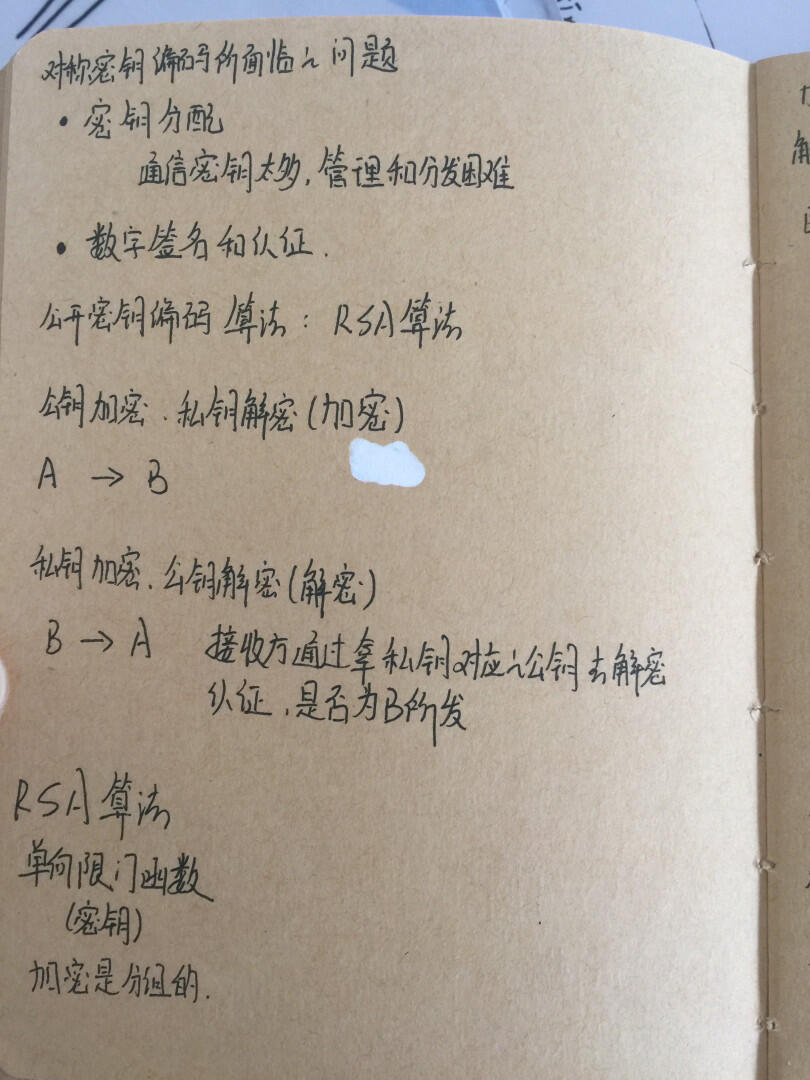 对称密钥编码所面临的问题
• 密钥分配
通信密钥太多,管理和分发困难
• 数字签名和认证.
公开密钥编码 算法: RSA算法
公钥加密.私钥解密(加密)
A → B
私钥加密.公钥解密(解密)
B → A 接收方通过拿私钥对应的公钥去解密
认证,是否为B所发
RSA算法
单向限门函数
(密钥)
加密是分组的.
解